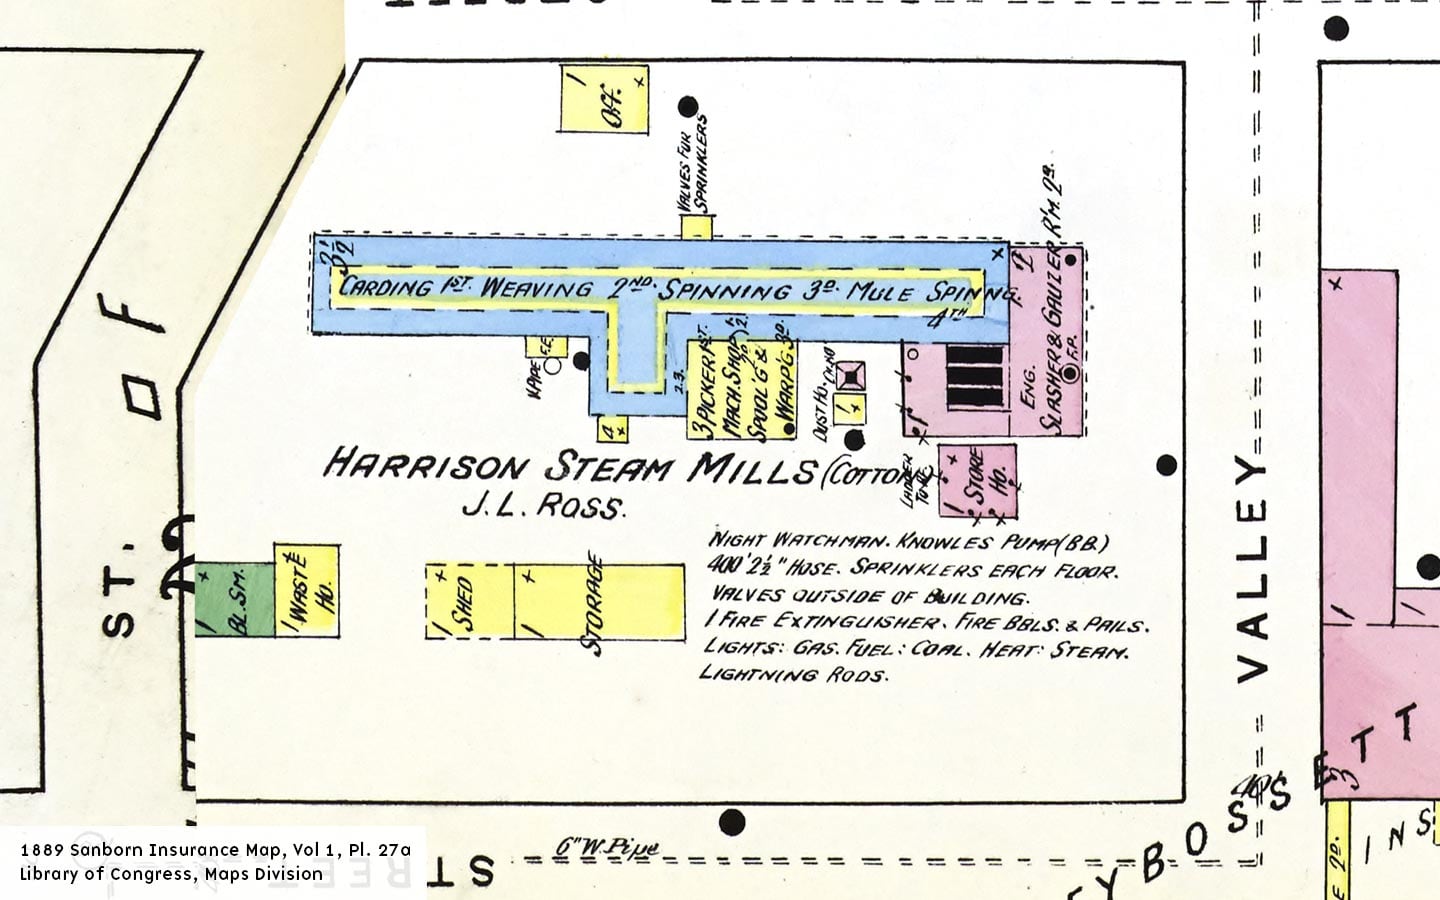 1
OFF.
X
VALVES FUR
SPRINKLERS
3½
CARDING 1ST. WEAVING 2ND. SPINNING 3D. MULE SPINNG.
4TH
X
2
ENG.
SLASHER & GAULZER R'M. 2D.
F.P.
F.E.
2.3.
3 PICKER 1ST.
MACH. SHOP
SPOOL'G &
WARP'G 3D.
DUST HO.
4
X
HARRISON STEAM MILLS (COTTON)
J.L. ROSS.
LADDER
1 STORE
HO.
NIGHT WATCHMAN. KNOWLES PUMP (B.B.)
400' 2½" HOSE. SPRINKLERS EACH FLOOR.
VALVES OUTSIDE OF BUILDING.
1 FIRE EXTINGUISHER. FIRE BBLS. & PAILS.
LIGHTS: GAS. FUEL: COAL. HEAT: STEAM.
LIGHTNING RODS.
X
1
BL. SM.
1 WASTE
HO.
X
1
SHED
X
1
STORAGE
ST. OF
VALLEY
X
1
1
3
BOSSETT
INS
E 2D.
6" W. Pipe
ST
1889 Sanborn Insurance Map, Vol 1, Pl. 27a
Library of Congress, Maps Division